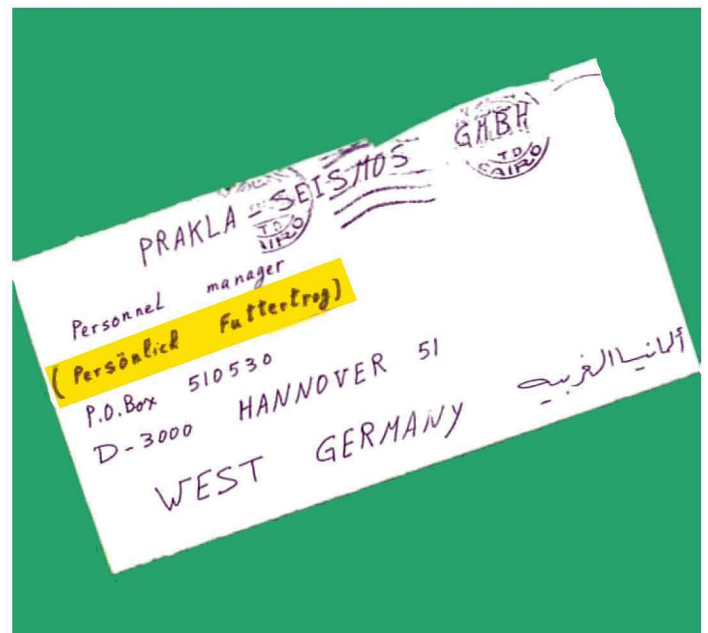 PRAKLA-SEISMOS GMBH
T.D.
CAIRO
T.D.
CAIRO
Personnel manager
(Persönlich Futtertrog)
P.O.Box 510530
D-3000 HANNOVER 51
WEST GERMANY
ألمانيا الغربيه